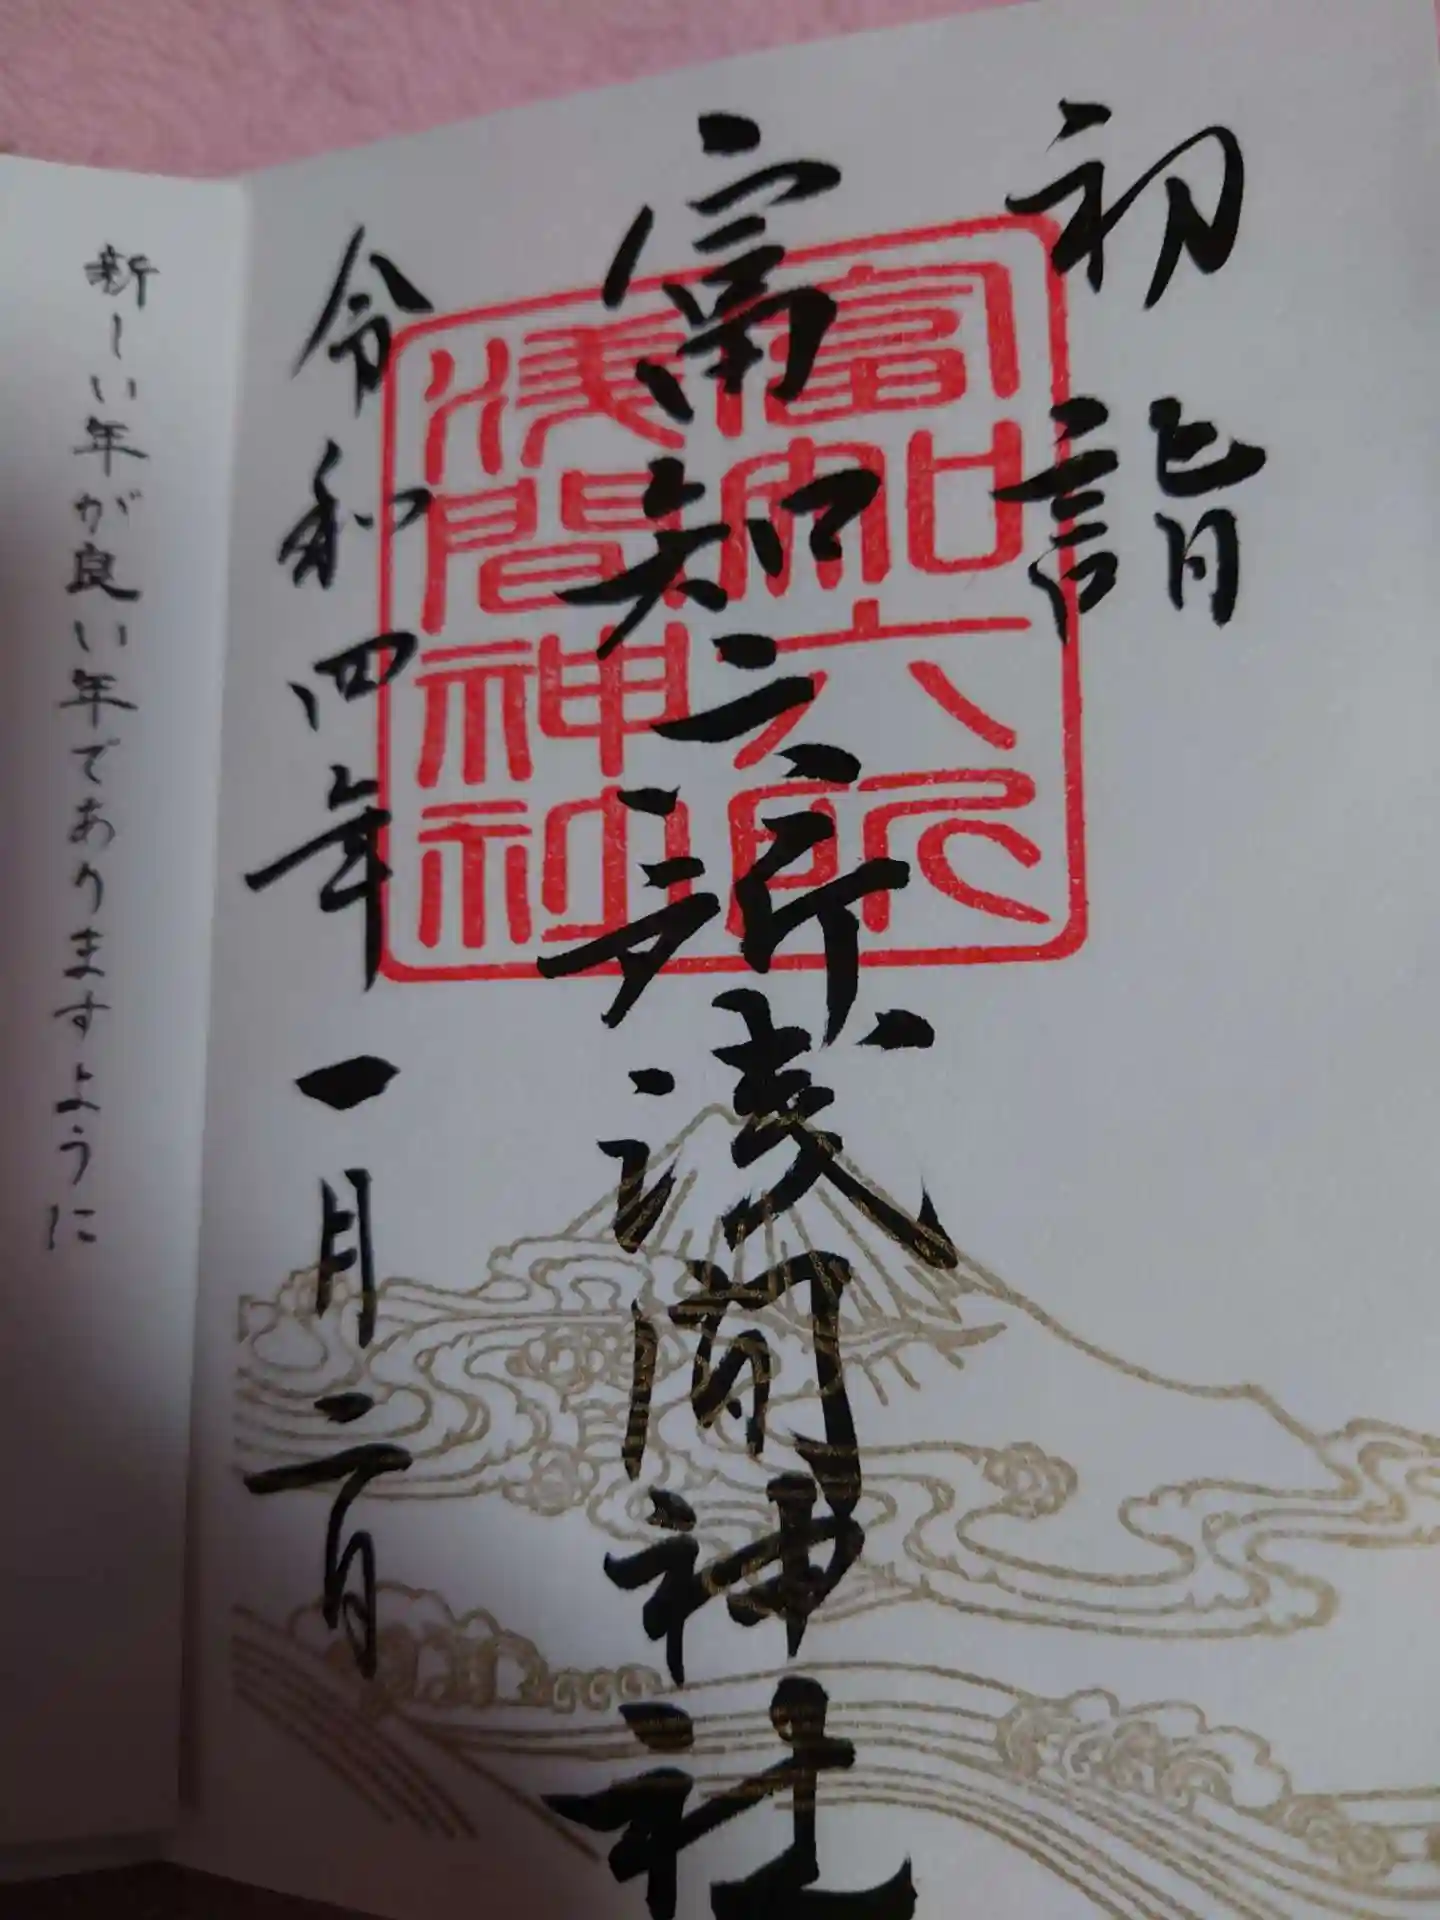 初詣
富知六所浅間神社
富知六所
浅間神社
令和四年一月二日
新しい年が良い年でありますように